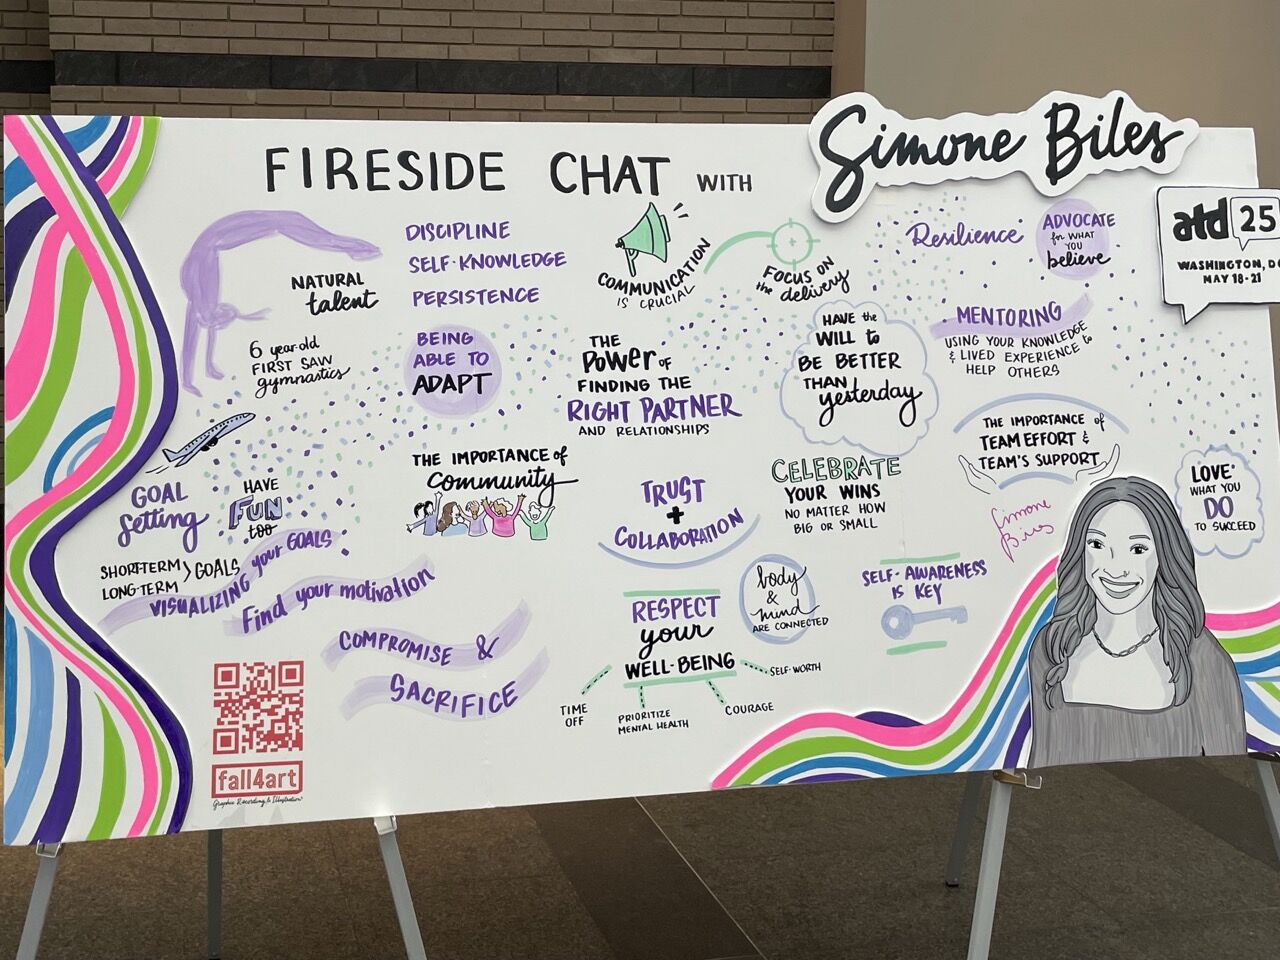 FIRESIDE CHAT WITH
Simone Biles
atd 25
WASHINGTON, DC
MAY 18-21
NATURAL
talent
6 year-old
FIRST SAW
gymnastics
DISCIPLINE
SELF-KNOWLEDGE
PERSISTENCE
BEING
ABLE TO
ADAPT
COMMUNICATION
IS CRUCIAL
FOCUS ON
the delivery
Resilience
ADVOCATE
for WHAT
YOU
believe
THE
Power OF
FINDING THE
RIGHT PARTNER
AND RELATIONSHIPS
HAVE the
WILL to
BE BETTER
THAN
yesterday
MENTORING
USING YOUR KNOWLEDGE
& LIVED EXPERIENCE to
HELP OTHERS
THE IMPORTANCE of
TEAM EFFORT &
TEAM'S SUPPORT
GOAL
Setting
HAVE
FUN
too
SHORT-TERM
LONG-TERM > GOALS
VISUALIZING your GOALS
Find your motivation
THE IMPORTANCE of
Community
TRUST
+
COLLABORATION
CELEBRATE
YOUR WINS
NO MATTER HOW
BIG OR SMALL
Simone
Biles
LOVE
WHAT YOU
DO
TO SUCCEED
COMPROMISE &
SACRIFICE
RESPECT
your
WELL-BEING
TIME
OFF
PRIORITIZE
MENTAL HEALTH
COURAGE
SELF-WORTH
body
&
mind
ARE CONNECTED
SELF-AWARENESS
IS KEY
fall4art
Graphic Recording & Illustration